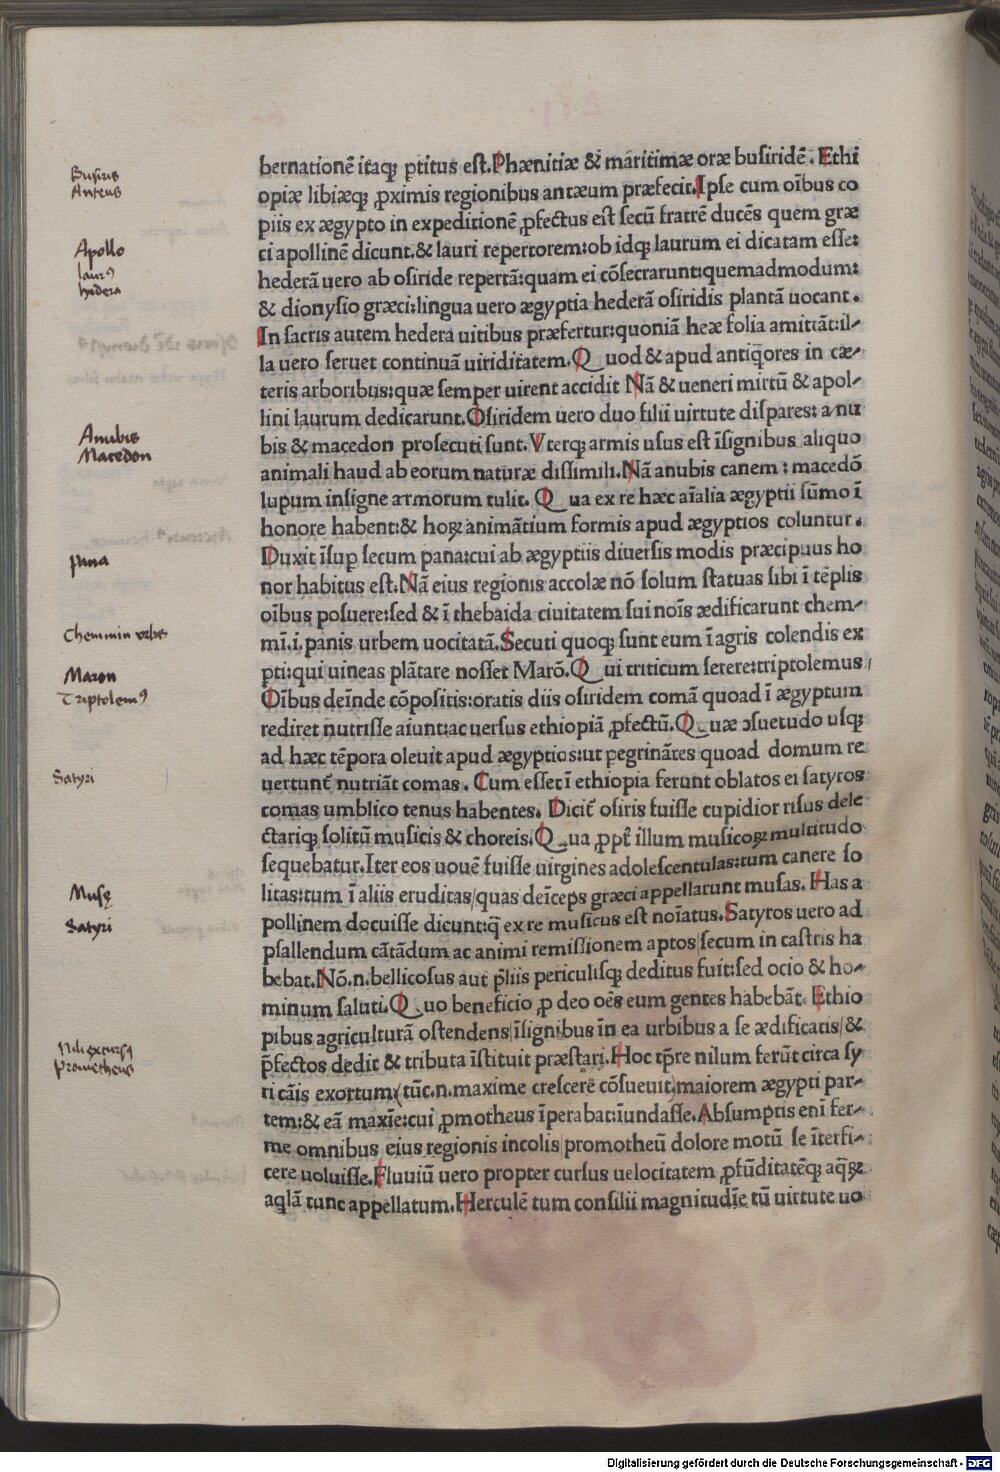 bernationē itaqꝫ ꝑtitus eſt.Phænitiæ & maritimæ oræ buſiridē. Ethi
opiæ libiæqꝫ ꝓximis regionibus antæum præfecit.Ipſe cum oībus co
piis ex ægypto in expeditionē ꝓfectus eſt ſecū fratrē ducēs quem græ
ci apollinē dicunt.& lauri repertorem:ob idqꝫ laurum ei dicatam eſſe:
hederā uero ab oſiride repertā:quam ei cōſecrarunt:quemadmodum:
& dionyſio græci:lingua uero ægyptia hederā oſiridis plantā uocant.
In ſacris autem hedera uitibus præfertur:quoniā heæ folia amittāt:il-
la uero ſeruet continuā uiriditatem.Quod & apud antiq̄ores in cæ-
teris arboribus:quæ ſemper uirent accidit Nā & ueneri mirtū & apol-
lini laurum dedicarunt.Oſiridem uero duo filii uirtute diſpares: anu
bis & macedon proſecuti ſunt.Vterqꝫ armis uſus eſt īſignibus aliquo
animali haud ab eorum naturæ diſſimili.Nā anubis canem: macedō
lupum inſigne armorum tulit. Qua ex re hæc aīalia ægyptii ſūmo ī
honore habent:& hoꝝ animātium formis apud ægyptios coluntur.
Duxit īſup ſecum pana:cui ab ægyptiis diuerſis modis præcipuus ho
nor habitus eſt.Nā eius regionis accolæ nō ſolum ſtatuas ſibi ī tēplis
oībus poſuere:ſed & ī thebaida ciuitatem ſui noīs ædificarunt chem-
mī.i.panis urbem uocitatā.Secuti quoqꝫ ſunt eum ī agris colendis ex
pti:qui uineas plātare noſſet Marō.Qui triticum ſerere:triptolemus/
Oībus deīnde cōpoſitis:oratis diis oſiridem comā quoad ī ægyptum
rediret nutriſſe aiunt:ac uerſus ethiopiā ꝓfectū.Quæ ↄſuetudo uſqꝫ
ad hæc tēpora oleuit apud ægyptios:ut pegrināres quoad domum re
uertunt̄ nutriāt comas. Cum eſſet ī ethiopia ferunt oblatos ei ſatyros
comas umblico tenus habentes. Dicit̄ oſiris fuiſſe cupidior riſus dele
ctariqꝫ ſolitū muſicis & choreis.Qua ꝓpt̄ illum muſicoꝝ multitudo
ſequebatur.Iter eos uouē fuiſſe uirgines adoleſcentulas:tum canere ſo
litas:tum ī aliis eruditas/quas deīceps græci appellarunt muſas. Has a
pollinem docuiſſe dicunt:q̄ ex re muſicus eſt noīatus.Satyros uero ad
pſallendum cātādum ac animi remiſſionem aptos/ſecum in caſtris ha
bebat.Nō.n.bellicoſus aut p̄liis periculiſqꝫ deditus fuit:ſed ocio & ho-
minum ſaluti.Quo beneficio ꝓ deo oēs eum gentes habebāt. Ethio
pibus agriculturā oſtendens/īſignibus in ea urbibus a ſe ædificatis/&
p̄fectos dedit & tributa īſtituit præſtari.Hoc tp̄re nilum ferūt circa ſy
ri cāis exortum(tūc.n.maxime creſcere cōſueuit)maiorem ægypti par-
tem:& eā maxīe:cui ꝓmotheus īperabat:īundaſſe.Abſumptis enī fer-
me omnibus eius regionis incolis/promotheū dolore motū ſe īterfi-
cere uoluiſſe.Fluuiū uero propter curſus uelocitatem ꝓfūditatēqꝫ aq̄ꝝ
aqlā tunc appellatum.Herculē tum conſilii magnitudīe tū uirtute uo
Buſiris
Anteus
Apollo
laurꝰ
hedera
Anubis
Macedon
pana
Chemmin vrbs
Maron
Triptolemꝰ
Satyri
Muſę
Satyri
Nili excurſꝰ
Prometheus
Digitalisierung gefördert durch die Deutsche Forschungsgemeinschaft - DFG